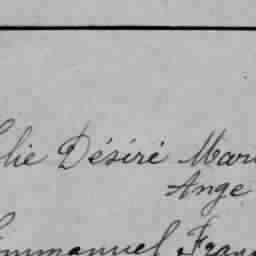 Elie Désiré Mari
Ange
Emmanuel Franç